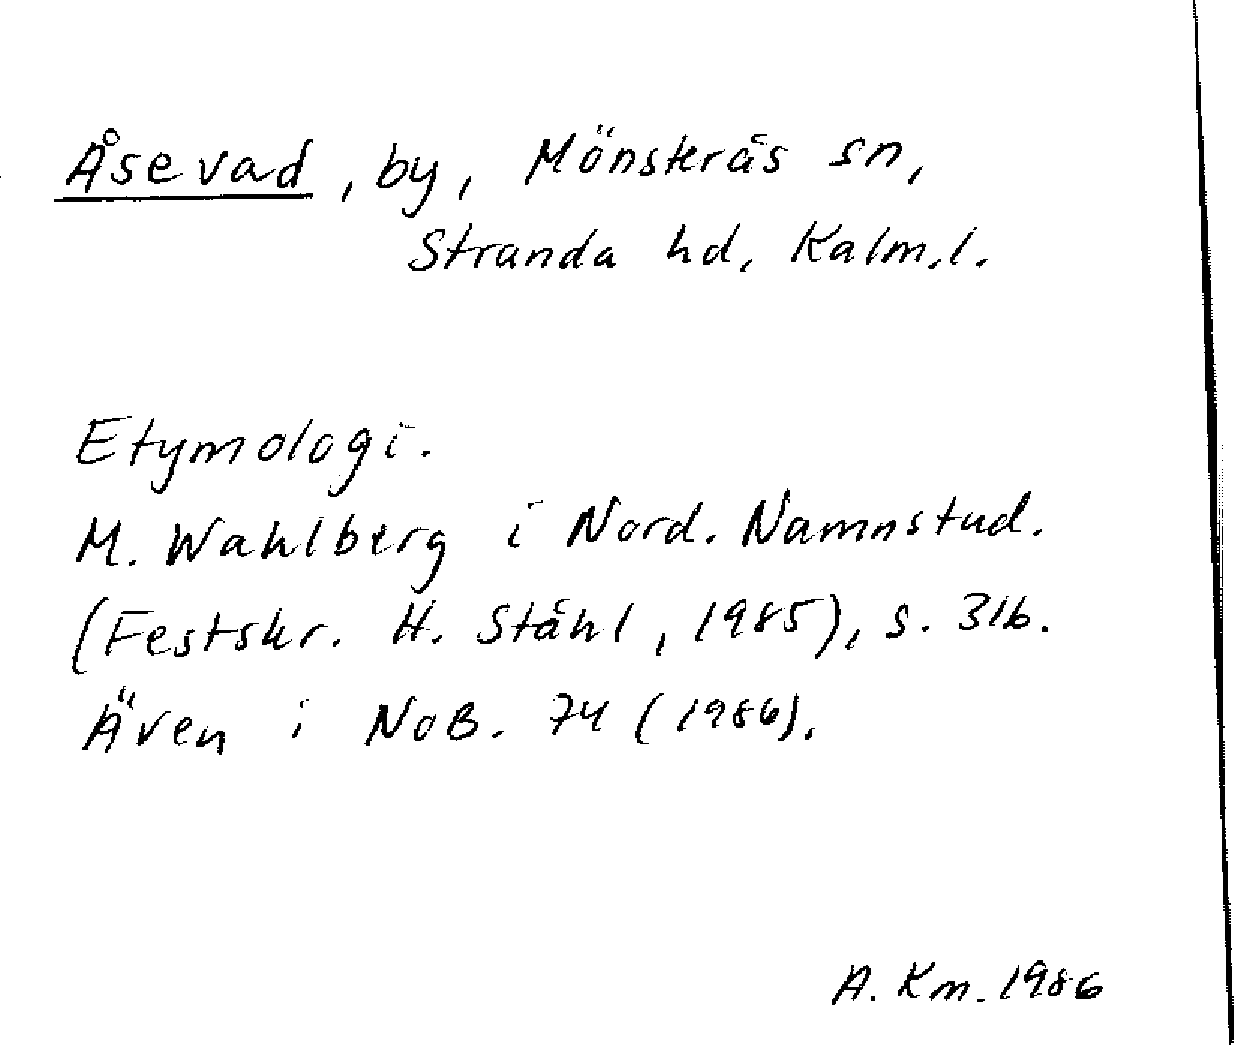 Åsevad, by, Mönsterås sn,
Stranda hd, Kalm.l.
Etymologi.
M. Wahlberg i Nord. Namnstud.
(Festskr. H. Ståhl, 1985), s. 316.
Även i NoB. 74 (1986).
A. Km. 1986